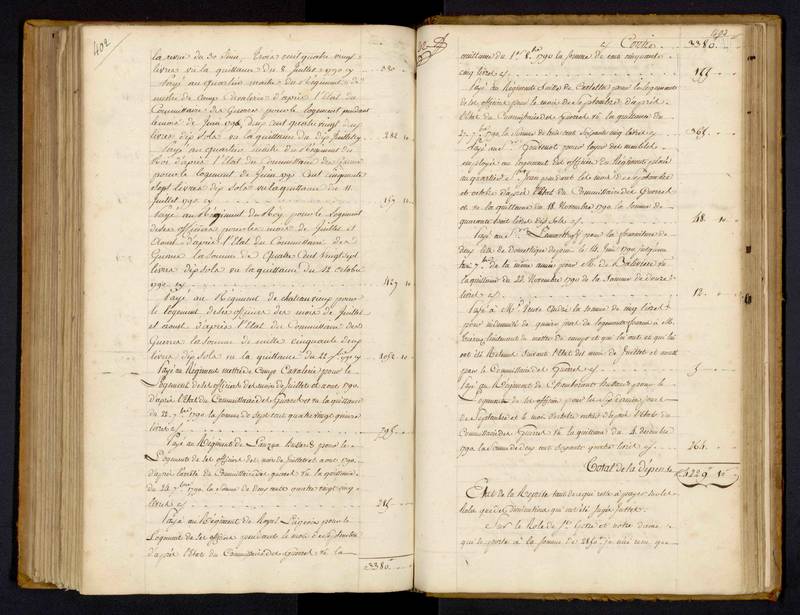 402
la revue du 30 Juin, trois cent quatre vingt
livres vû la quittance du 8 Juillet 1790 cy . . . 380
Payé au quartier maître du Régiment de
mestre de Camp Cavalerie d'après l'Etat du
Commissaire des Guerres pour le logement pendant
le mois de Juin 1790, deux cent quatre vingt deux
livres dix sols vu la quittance du dix Juillet cy . . . 282 10
Payé au quartier maître du Régiment du
Roi d'après l'Etat du Commissaire des Guerres
pour le logement de Juin 1790 Cent cinquante
sept livres dix sols vu la quittance du 11
Juillet 1790 cy . . . 157 10
Payé au Régiment du Roy, pour le logement
de ses officiers pour les mois de Juillet et
Aoust d'après l'Etat du Commissaire des
Guerres la somme de Quatre Cent Vingt sept
livres dix sols vu la quittance du 12 octobre
1790 cy . . . 427 10
Payé au Régiment de chateauvieux pour
le logement des officiers des mois de Juillet
et aoust d'après l'Etat du Commissaire des
Guerres la somme de mille cinquante deux
livres dix sols vu la quittance du 22 7bre 1790 cy . . . 1052 10
Payé au Régiment mestre de Camp Cavalerie pour le
Logement de ses officiers des mois de Juillet et aout 1790.
d'après l'Etat du Commissaire des Guerres et vu la quittance
du 22 7bre 1790 la somme de sept cent quatre vingt quinze
livres cy . . . 795
Payé au Régiment de Lauzun hussards pour le
Logement de ses officiers des mois de Juillet et aout 1790.
d'après l'arrêté du Commissaire des guerres vû la quittance
du 24 7bre 1790. la somme de deux cent quatre vingt cinq
livres cy . . . 285
Payé au Régiment de Royal Liégeois pour le
Logement de ses officiers pendant le mois de septembre
d'après l'Etat du Commissaire des Guerres vû la
3380
403
Contre . . . 3380
quittance du 1er 8bre 1790 la somme de cent cinquante
cinq livres cy . . . 155
Payé au Régiment Suisse de Castella pour le logement
de ses officiers pour le mois de septembre d'après
l'Etat du Commissaire des Guerres vû la quittance du
27 7bre 1790 la somme de trois cent soixante cinq livres cy . . . 365
Payé au Sr. pour loyer des meubles
employés au logement des officiers du Régiment
au quartier St Jean pendant les mois de septembre
et octobre d'après l'Etat du Commissaire des Guerres
et vu la quittance du 18 Novembre 1790 la somme de
quarante huit livres dix sols cy . . . 48 10
Payé au Sr pour la fourniture de
deux lits de domestique depuis le 14 Juin 1790 jusqu'au
7bre de la même année pour M. de
la quittance du 22 Novembre 1790 de la somme de douze
livres cy . . . 12
Payé à Md Veuve la somme de cinq livres
pour indemnité de quinze jours de logement fourni à M.
lieutenant de mestre de camp et qui lui ont été
retenus suivant l'Etat des mois de Juillet et aout
par le Commissaire des Guerres cy . . . 5
Payé au Régiment de hussards pour le
Logement de ses officiers pour les six derniers jours
de Septembre et le mois d'octobre entier d'après l'Etat du
Commissaire des Guerres vû la quittance du 4 décembre
1790 la somme de deux cent soixante quatre livres cy . . . 264
Total de la dépense 4229 10
Etat de la Recette tant de ce qui reste à payer sur les
Rôles que des diminutions qui ont été jugés justes.
Sur le Rôle de St Goëry et notre dame
qui se porte à la somme de